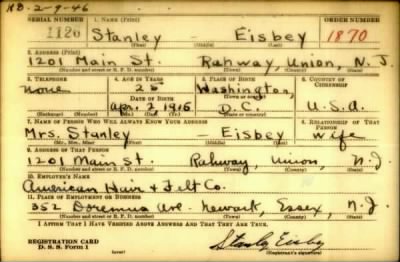 HB. 2-9-46
SERIAL NUMBER 1. NAME (Print) ORDER NUMBER
1126 Stanley - Eisbey 1870
(First) (Middle) (Last)
2. ADDRESS (Print)
1201 Main St. Rahway, Union, N. J.
(Number and street or R. F. D. number) (Town) (County) (State)
3. TELEPHONE 4. AGE IN YEARS 5. PLACE OF BIRTH 6. COUNTRY OF CITIZENSHIP
None 25 Washington,
DATE OF BIRTH (Town or county)
Apr. 2, 1915 D. C. U. S. A.
(Exchange) (Number) (Mo.) (Day) (Yr.) (State or country)
7. NAME OF PERSON WHO WILL ALWAYS KNOW YOUR ADDRESS 8. RELATIONSHIP OF THAT PERSON
Mrs. Stanley - Eisbey Wife
(Mr., Mrs., Miss) (First) (Middle) (Last)
9. ADDRESS OF THAT PERSON
1201 Main St. Rahway, Union, N. J.
(Number and street or R. F. D. number) (Town) (County) (State)
10. EMPLOYER'S NAME
American Hair & Felt Co.
11. PLACE OF EMPLOYMENT OR BUSINESS
352 Doremus Ave. Newark, Essex, N. J.
(Number and street or R. F. D. number) (Town) (County) (State)
I AFFIRM THAT I HAVE VERIFIED ABOVE ANSWERS AND THAT THEY ARE TRUE.
REGISTRATION CARD
D. S. S. Form 1 Stanley Eisby
(Registrant's signature)